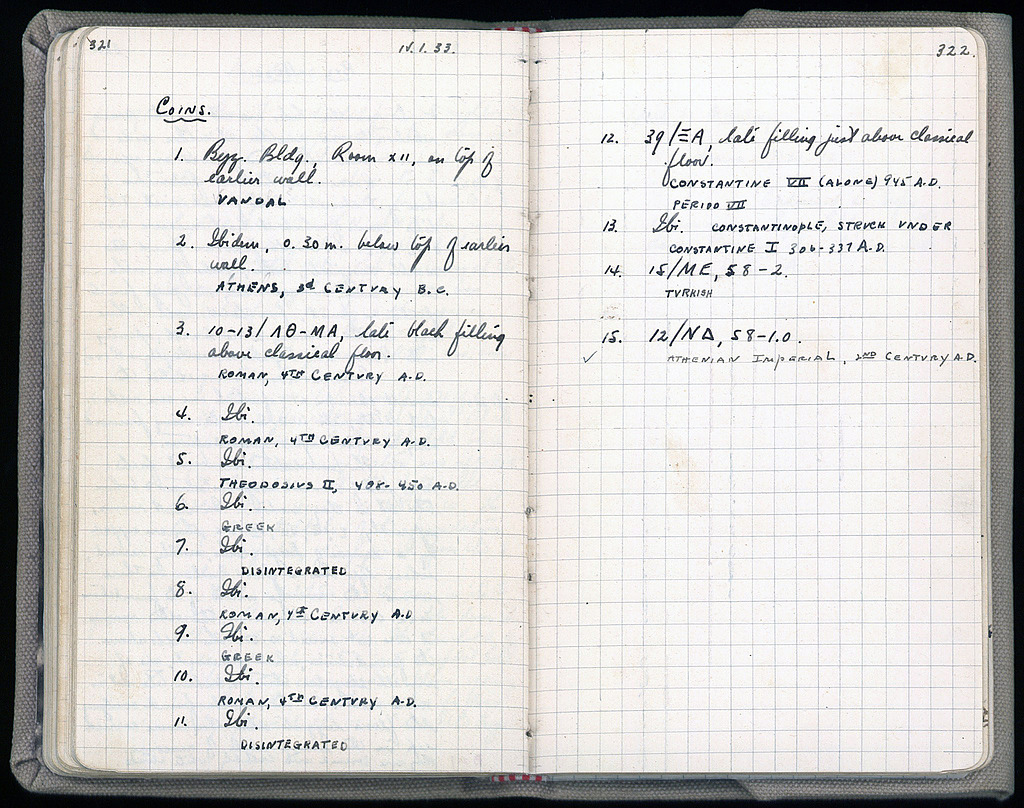 321
IV. 1. 33.
Coins.
1. Byz. Bldg., Room XII, on top of
earlier wall.
VANDAL
2. Ibidem, 0.30 m. below top of earlier
wall.
ATHENS, 3d CENTURY B.C.
3. 10-13/ΛΘ-ΜΑ, late black filling
above classical floor.
ROMAN, 4TH CENTURY A.D.
4. Ibi.
ROMAN, 4TH CENTURY A.D.
5. Ibi.
THEODOSIUS II, 408-450 A.D.
6. Ibi.
GREEK
7. Ibi.
DISINTEGRATED
8. Ibi.
ROMAN, 4TH CENTURY A.D
9. Ibi.
GREEK
10. Ibi.
ROMAN, 4TH CENTURY A.D.
11. Ibi.
DISINTEGRATED
322.
12. 39/ΞΑ, late filling just above classical
floor.
CONSTANTINE VII (ALONE) 945 A.D.
PERIOD VII
13. Ibi. CONSTANTINOPLE, STRUCK UNDER
CONSTANTINE I 306-337 A.D.
14. 15/ΜΕ, 58-2.
TURKISH
15. 12/ΝΔ, 58-1.0.
✓ ATHENIAN IMPERIAL, 2ND CENTURY A.D.